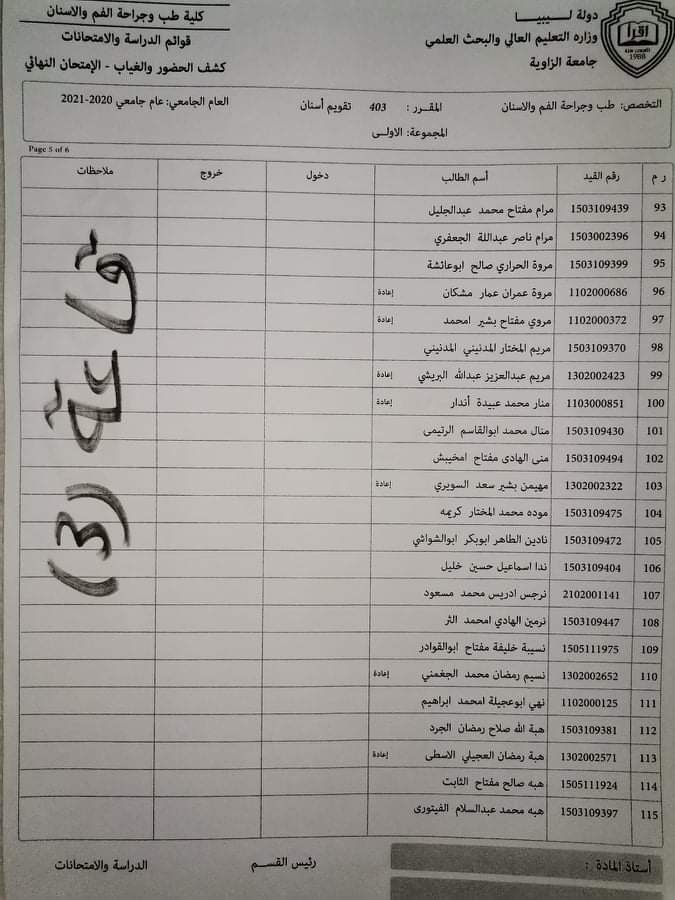 دولة لـــيبيـــا
وزاره التعليم العالي والبحث العلمي
جامعة الزاوية
اقرأ
1988
كلية طب وجراحة الفم والاسنان
قوائم الدراسة والامتحانات
كشف الحضور والغياب - الإمتحان النهائي
التخصص: طب وجراحة الفم والاسنان المقـرر : 403 تقويم أسنان العام الجامعي: عام جامعي 2020-2021
المجموعة: الاولـى
Page 5 of 6
ر م رقم القيد أسم الطالب دخول خروج ملاحظات
93 1503109439 مرام مفتاح محمد عبدالجليل
94 1503002396 مرام ناصر عبداللة الجعفري
95 1503109399 مروة الحراري صالح ابوعائشة
96 1102000686 مروة عمران عمار مشكان إعادة
97 1102000372 مروي مفتاح بشير امحمد إعادة
98 1503109370 مريم المختار المدنيني المدنيني
99 1302002423 مريم عبدالعزيز عبدالله البريشي إعادة
100 1103000851 منار محمد عبيدة أندار إعادة
101 1503109430 منال محمد ابوالقاسم الرتيمى
102 1503109494 منى الهادى مفتاح امخيبش
103 1302002322 مهيمن بشير سعد السويري إعادة
104 1503109475 موده محمد المختار كريمه
105 1503109472 نادين الطاهر ابوبكر ابوالشواشي
106 1503109404 ندا اسماعيل حسين خليل
107 2102001141 نرجس ادريس محمد مسعود
108 1503109447 نرمين الهادي امحمد الثر
109 1505111975 نسيبة خليفة مفتاح ابوالقوادر
110 1302002652 نسيم رمضان محمد الجغمني إعادة
111 1102000125 نهي ابوعجيلة امحمد ابراهيم
112 1503109381 هبة الله صلاح رمضان الجرد
113 1302002571 هبة رمضان العجيلي الاسطى إعادة
114 1505111924 هبه صالح مفتاح الثابت
115 1503109397 هبه محمد عبدالسلام الفيتورى
(3)
أستاذ المادة : رئيس القســم الدراسة والامتحانات